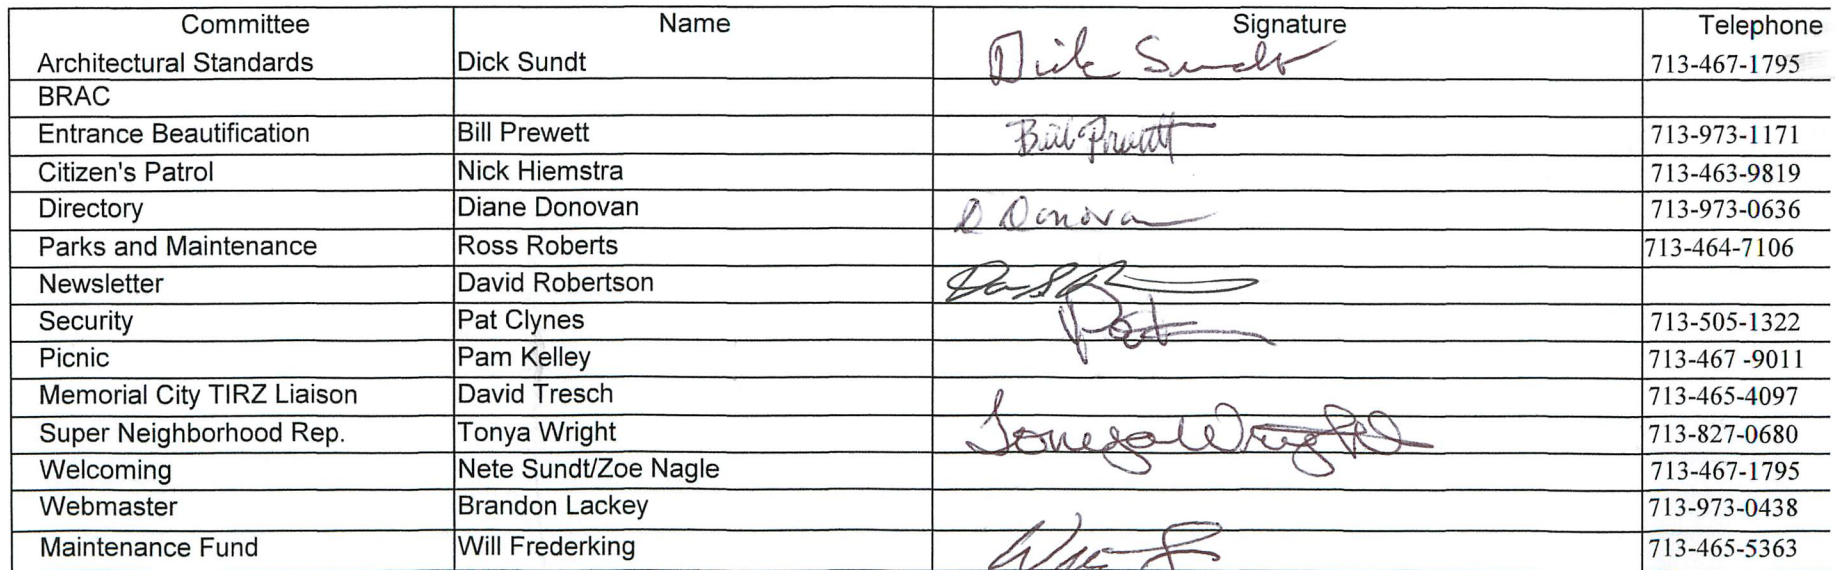 Committee Name Signature Telephone
Architectural Standards Dick Sundt Dick Sundt 713-467-1795
BRAC
Entrance Beautification Bill Prewett Bill Prewett 713-973-1171
Citizen's Patrol Nick Hiemstra 713-463-9819
Directory Diane Donovan D Donovan 713-973-0636
Parks and Maintenance Ross Roberts 713-464-7106
Newsletter David Robertson
Security Pat Clynes Pat 713-505-1322
Picnic Pam Kelley 713-467 -9011
Memorial City TIRZ Liaison David Tresch 713-465-4097
Super Neighborhood Rep. Tonya Wright Tonya Wright 713-827-0680
Welcoming Nete Sundt/Zoe Nagle 713-467-1795
Webmaster Brandon Lackey 713-973-0438
Maintenance Fund Will Frederking 713-465-5363